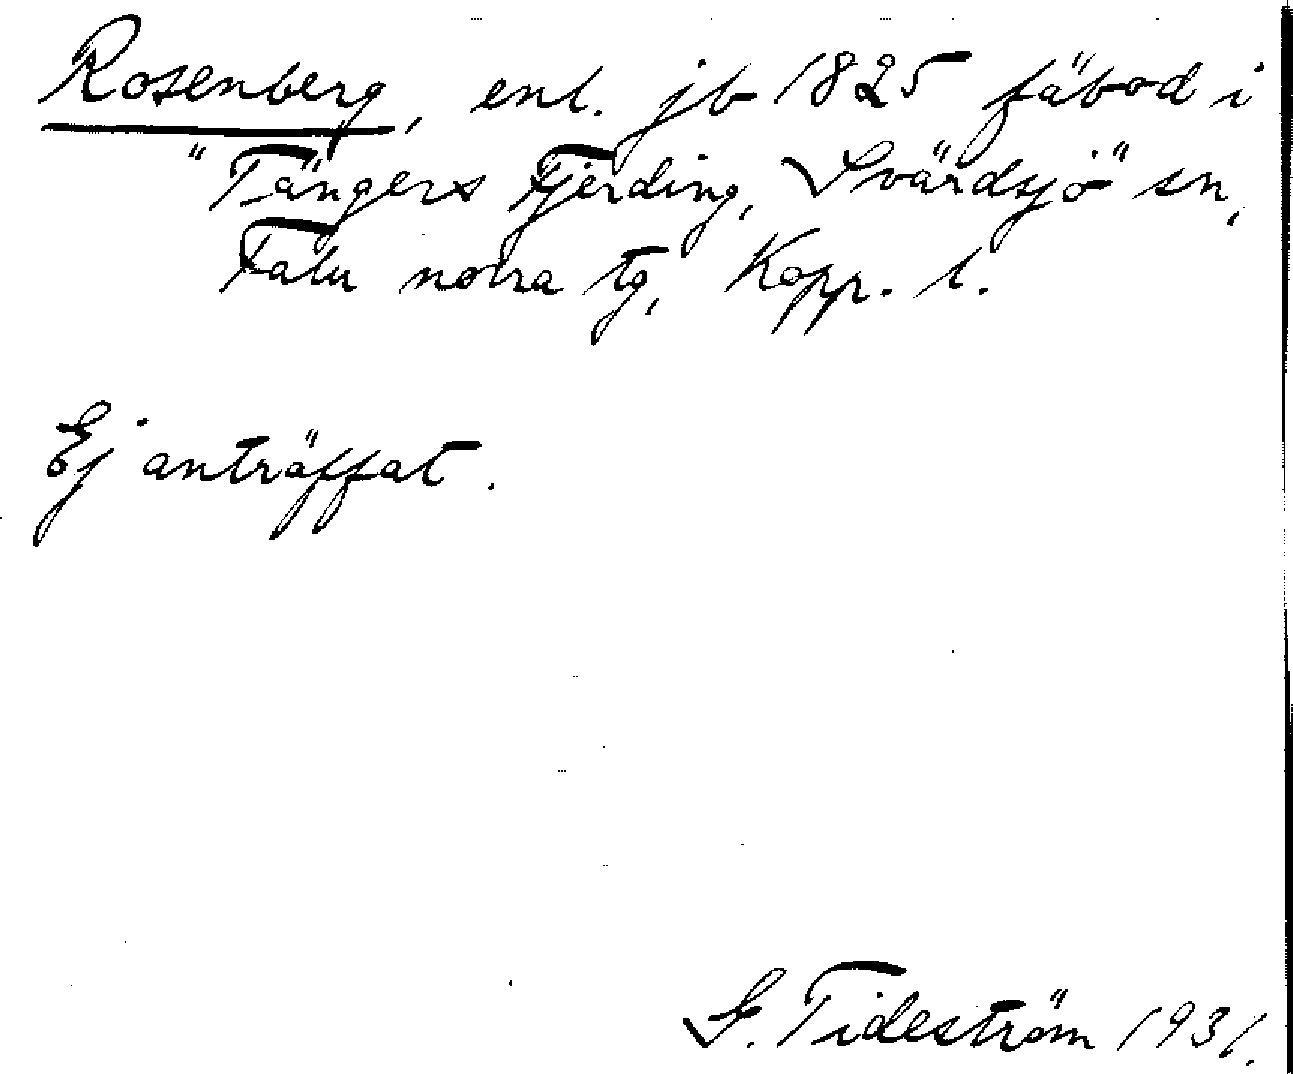 Rosenberg, enl. jb 1825 fäbod i
"Tängers Fjerding, Svärdsjö" sn,
Falu norra tg, Kopp. l.
Ej anträffat.
G. Tideström 1931.